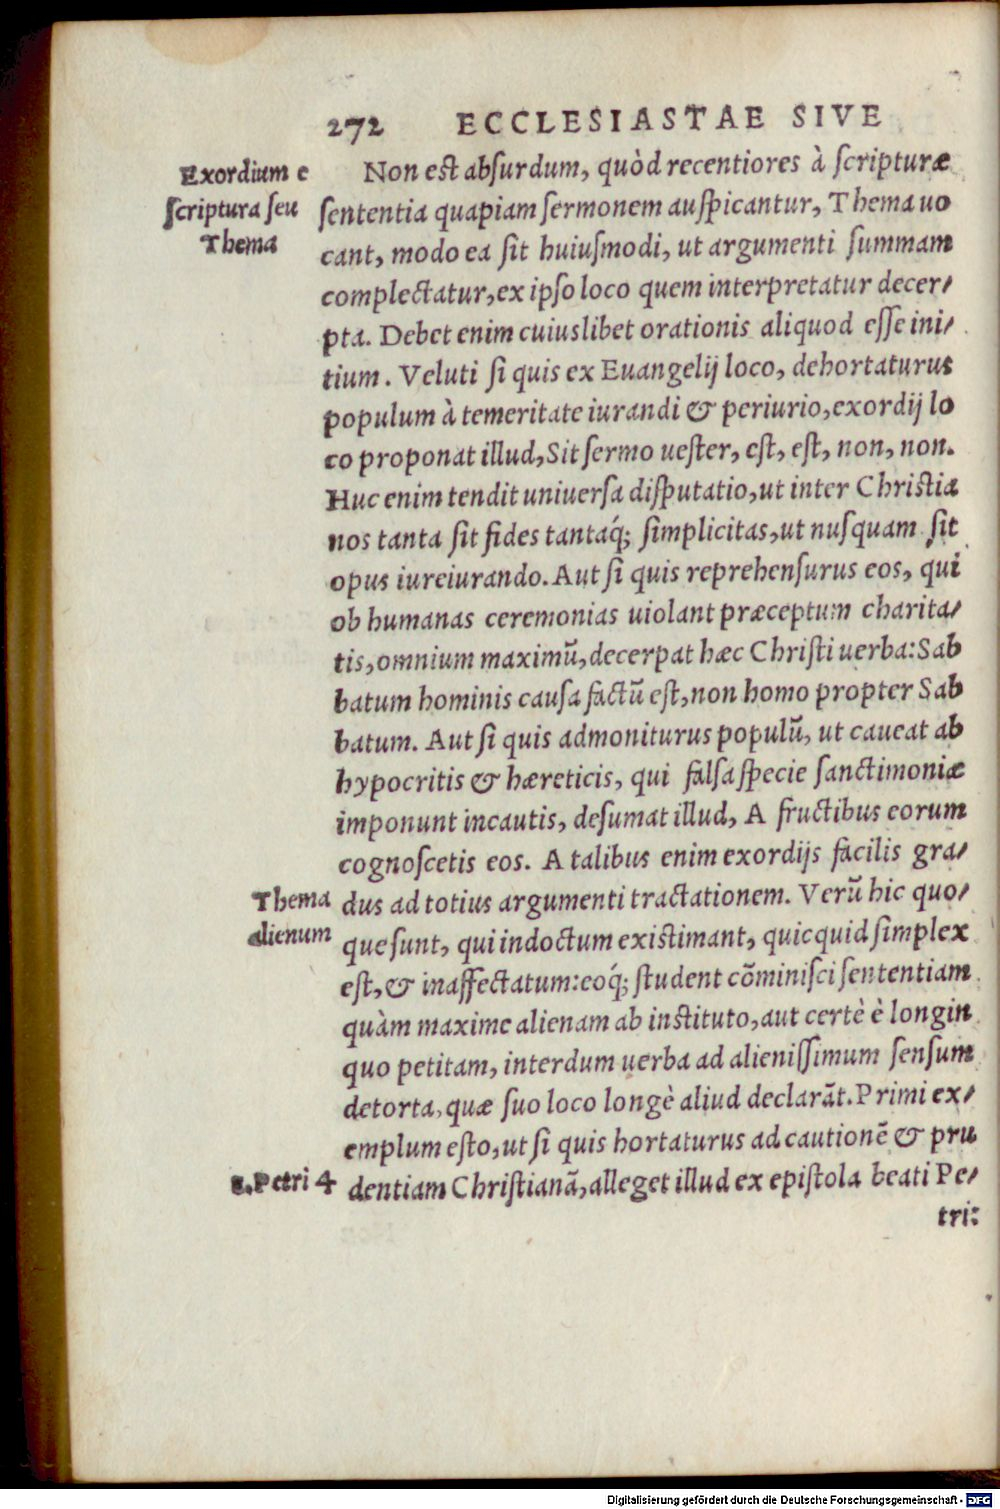 272 ECCLESIASTAE SIVE
Exordium e
scriptura seu
Thema
Non est absurdum, quòd recentiores à scripturæ
sententia quapiam sermonem auspicantur, Thema uo
cant, modo ea sit huiusmodi, ut argumenti summam
complectatur, ex ipso loco quem interpretatur decer/
pta. Debet enim cuiuslibet orationis aliquod esse ini/
tium. Veluti si quis ex Euangelij loco, dehortaturus
populum à temeritate iurandi & periurio, exordij lo
co proponat illud, Sit sermo uester, est, est, non, non.
Huc enim tendit uniuersa disputatio, ut inter Christia
nos tanta sit fides tantaq́; simplicitas, ut nusquam sit
opus iureiurando. Aut si quis reprehensurus eos, qui
ob humanas ceremonias uiolant præceptum charita/
tis, omnium maximũ, decerpat hæc Christi uerba: Sab
batum hominis causa factũ est, non homo propter Sab
batum. Aut si quis admoniturus populũ, ut caueat ab
hypocritis & hæreticis, qui falsa specie sanctimoniæ
imponunt incautis, desumat illud, A fructibus eorum
cognoscetis eos. A talibus enim exordijs facilis gra/
Thema
alienum
dus ad totius argumenti tractationem. Verũ hic quo/
que sunt, qui indoctum existimant, quicquid simplex
est, & inaffectatum: eoq́; student cõminisci sententiam
quàm maxime alienam ab instituto, aut certè è longin
quo petitam, interdum uerba ad alienissimum sensum
detorta, quæ suo loco longè aliud declarãt. Primi ex/
emplum esto, ut si quis hortaturus ad cautionẽ & pru
Petri 4
dentiam Christianã, alleget illud ex epistola beati Pe/
tri:
Digitalisierung gefördert durch die Deutsche Forschungsgemeinschaft - DFG